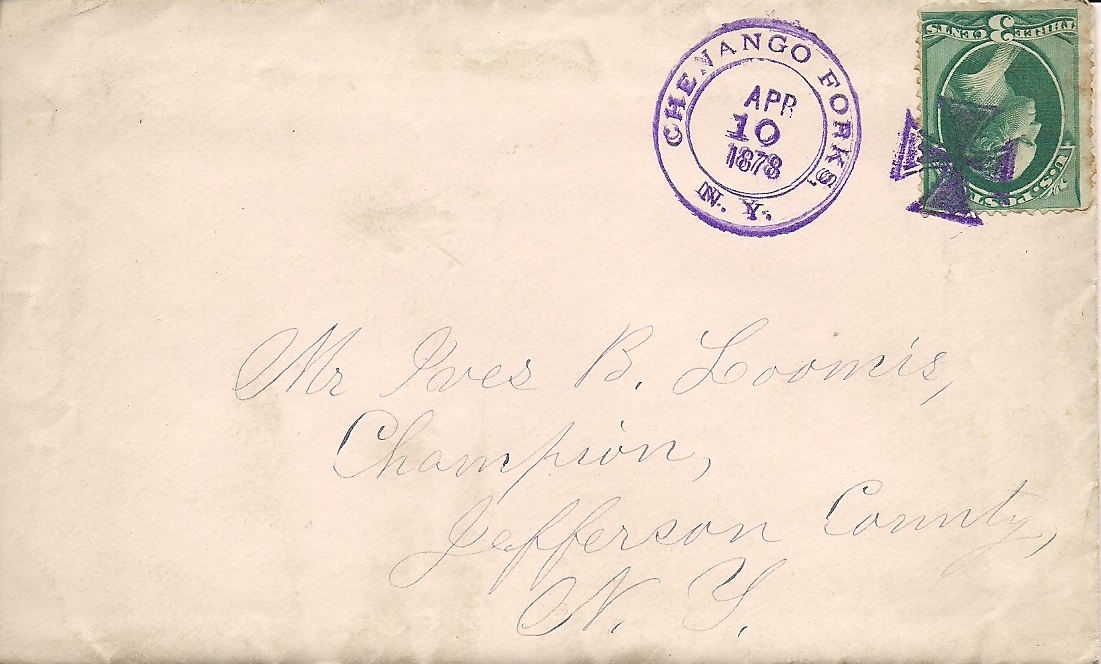 CHENANGO FORKS,
N. Y.
APR
10
1878
THREE 3 CENTS
U.S. POSTAGE
Mr Ives B. Loomis,
Champion,
Jefferson County,
N. Y.